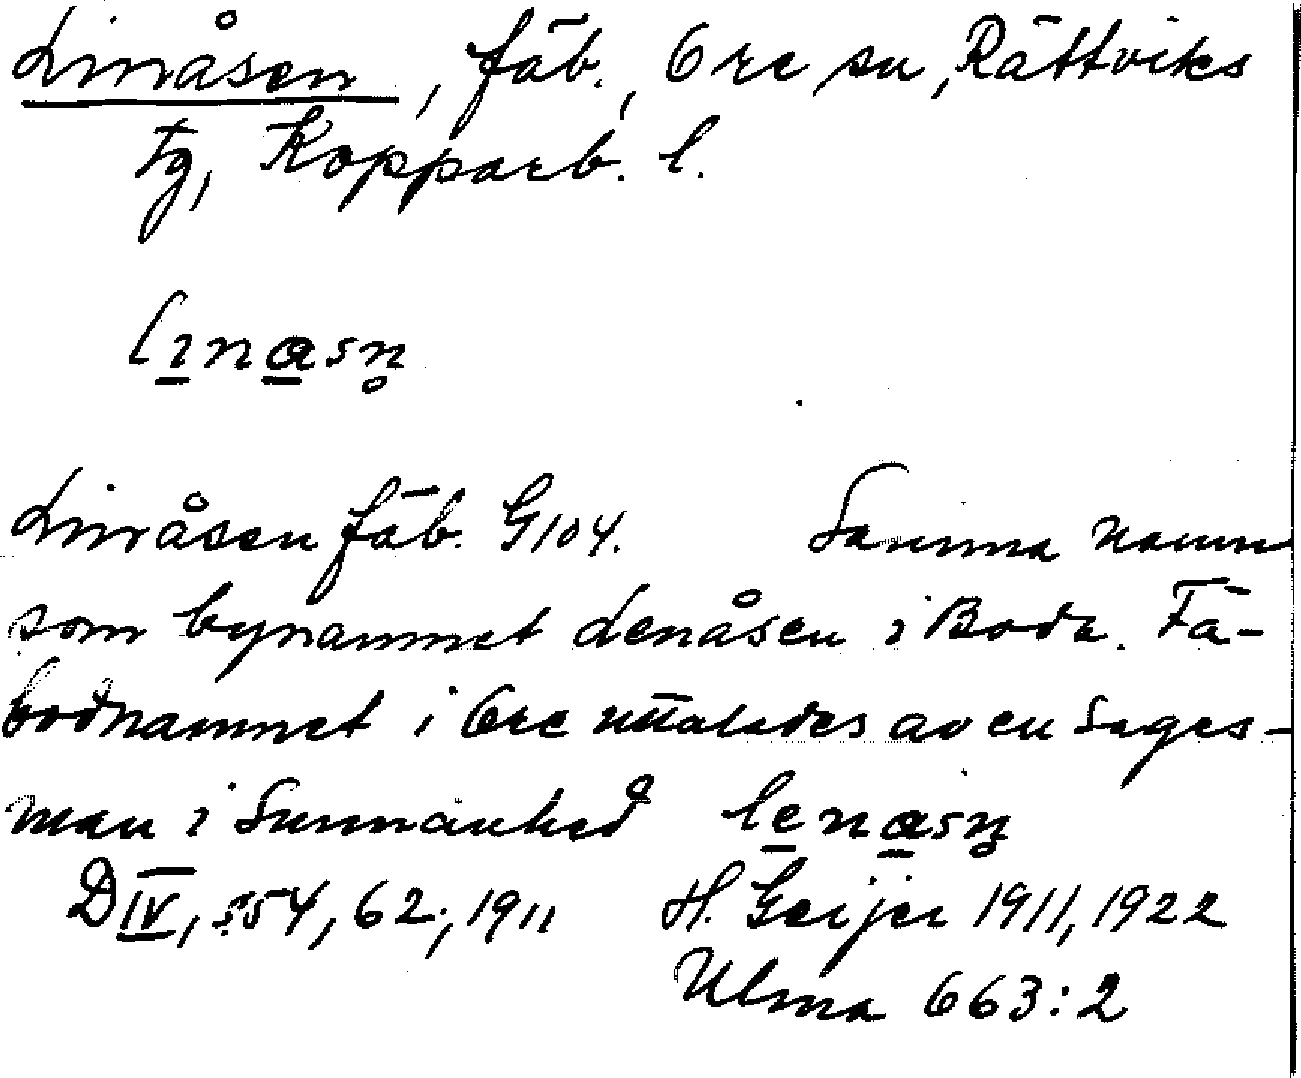 Linåsen, fäb., Ore sn, Rättviks
tg, Kopparb. l.
linasn̥
Linåsen fäb. G104. Samma namn
som bynamnet Lenåsen i Boda. Fä-
bodnamnet i Ore uttalades av en sages-
man i Sunnanhed lenasn̥
D IV, s 54, 62, 1911 H. Geijer 1911, 1922
Ulma 663:2